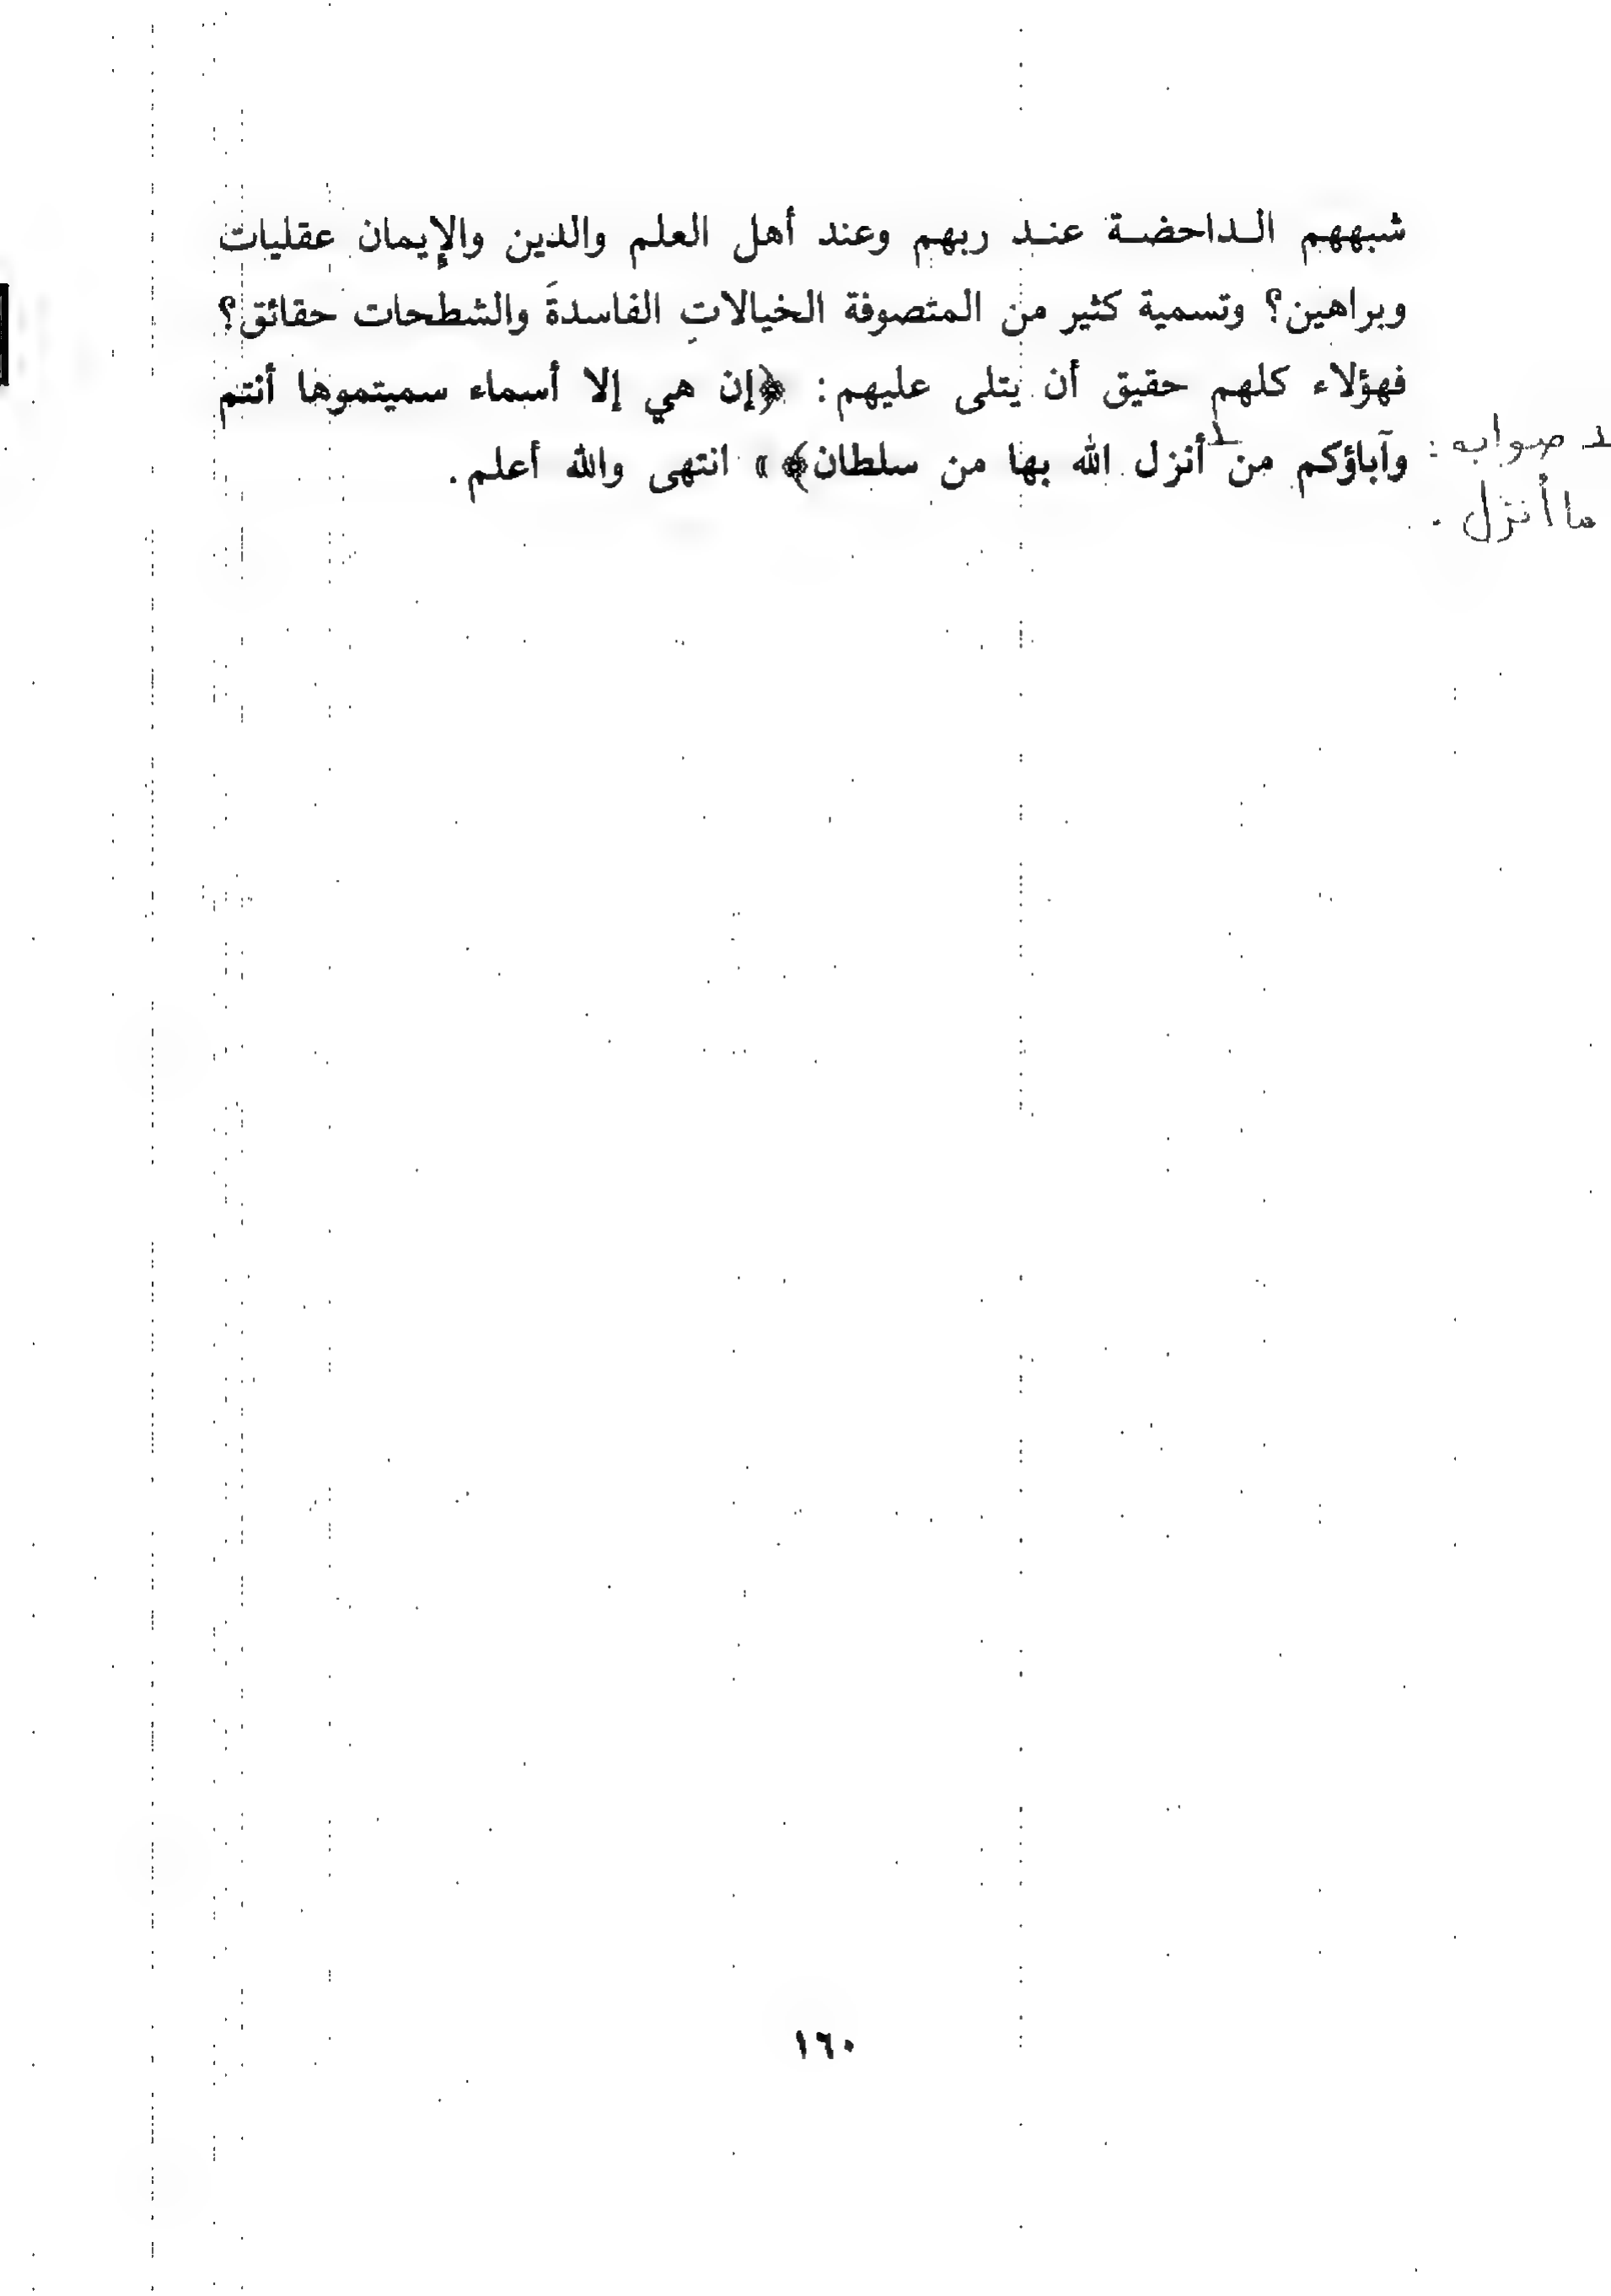 شبههم الداحضة عند ربهم وعند أهل العلم والدين والإيمان عقليات
وبراهين؟ وتسمية كثير من المتصوفة الخيالاتِ الفاسدةَ والشطحات حقائق؟
فهؤلاء كلهم حقيق أن يتلى عليهم: ﴿إن هي إلا أسماء سميتموها أنتم
وآباؤكم من أنزل الله بها من سلطان﴾» انتهى والله أعلم.
صوابه:
ما أنزل.
١٦٠